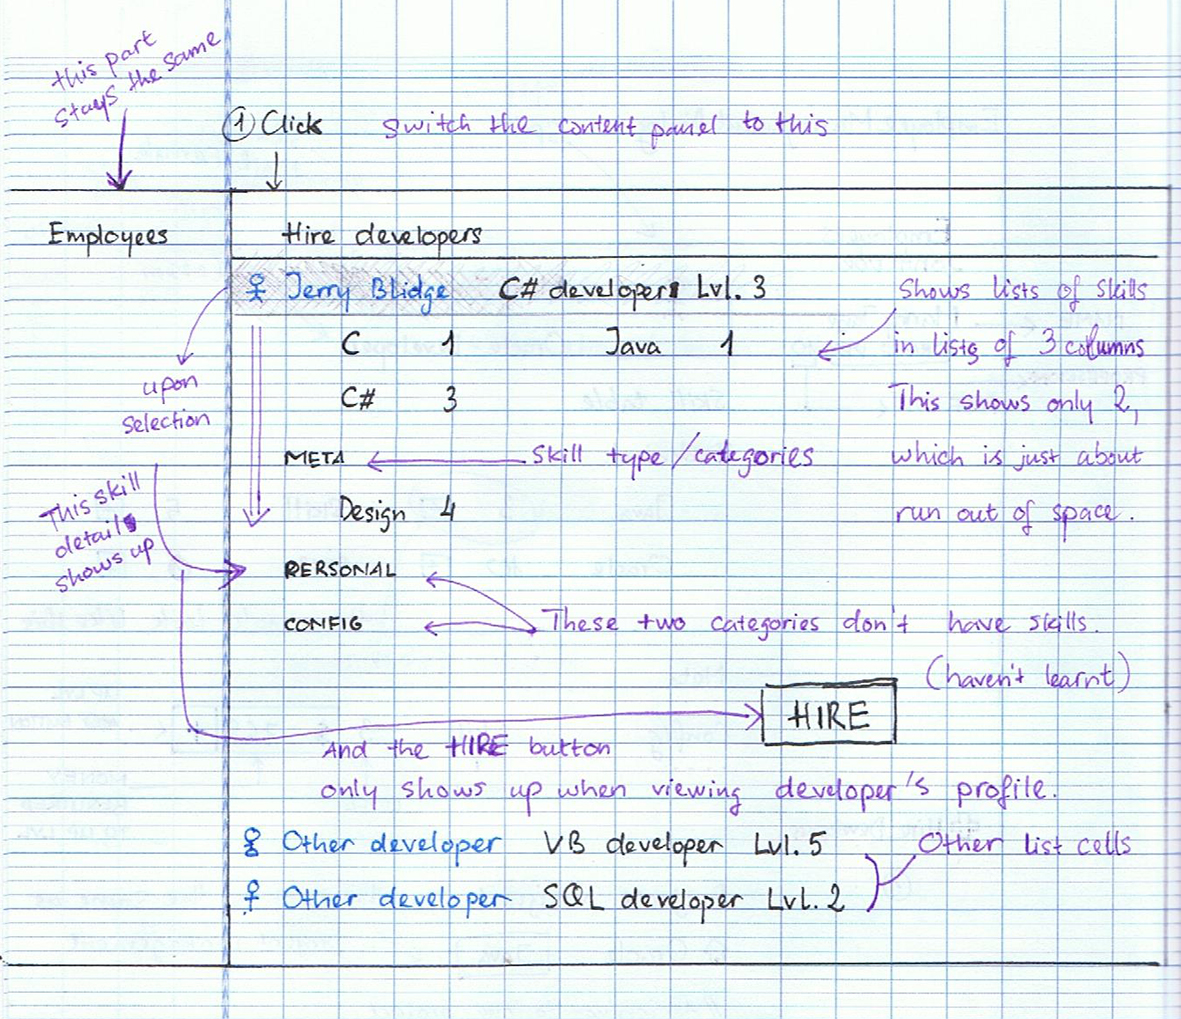 this part
stays the same
① Click switch the content panel to this
Employees Hire developers
Jerry Blidge C# developer Lvl. 3
Shows lists of skills
in lists of 3 columns
This shows only 2,
which is just about
run out of space.
C 1 Java 1
C# 3
upon
selection
META
skill type/categories
Design 4
This skill
details
shows up
PERSONAL
CONFIG
These two categories don't have skills.
(haven't learnt)
HIRE
And the HIRE button
only shows up when viewing developer's profile.
Other developer VB developer Lvl. 5
Other list cells
Other developer SQL developer Lvl. 2